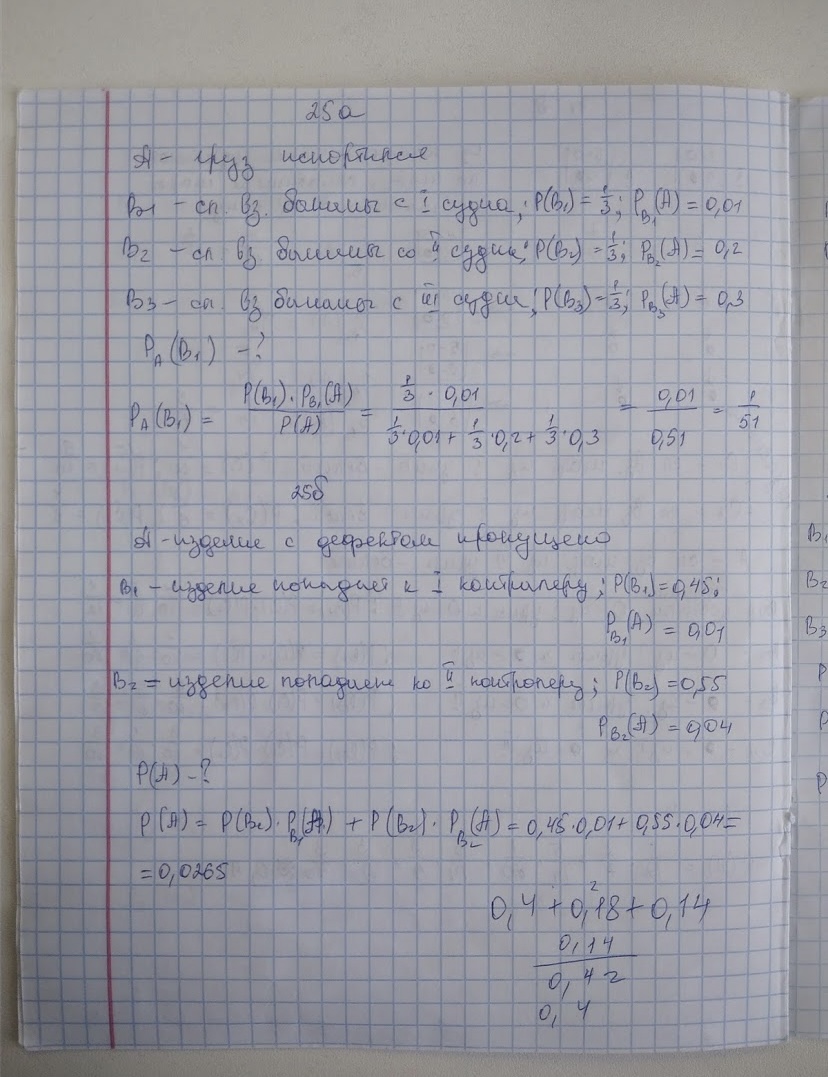 25а
А - груз испортился
В1 - сл. вз. бананы с I судна; P(B₁) = 1/3; P_B₁(A) = 0,01
В2 - сл. вз. бананы со II судна; P(B₂) = 1/3; P_B₂(A) = 0,2
В3 - сл. вз бананы с III судна; P(B₃) = 1/3; P_B₃(A) = 0,3
P_A(B₁) - ?
P_A(B₁) = P(B₁)·P_B₁(A) / P(A) = 1/3 · 0,01 / 1/3·0,01 + 1/3·0,2 + 1/3·0,3 = 0,01/0,51 = 1/51
25б
А - изделие с дефектом пропущено
В₁ - изделие попадает к I контролеру; P(B₁) = 0,45;
P_B₁(A) = 0,01
В₂ = изделие попадает ко II контролеру; P(B₂) = 0,55
P_B₂(A) = 0,04
P(A) - ?
P(A) = P(B₂)·P_B₁(A) + P(B₂)·P_B₂(A) = 0,45·0,01 + 0,55·0,04 =
= 0,0265
0,4 + 0,18 + 0,14
2
0,14
0,42
0,4
В
В₂
В3
P
P
P